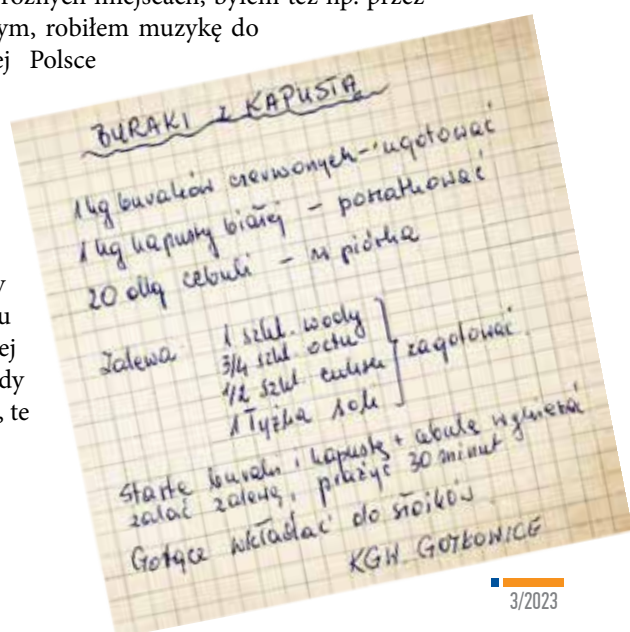 różnych miejscach, byłem też np. przez
ym, robiłem muzykę do
ej Polsce
BURAKI z KAPUSTĄ
1 kg buraków czerwonych - ugotować
1 kg kapusty białej - poszatkować
20 dkg cebuli - w piórka
Zalewa
1 szkl. wody
3/4 szkl. octu
1/2 szkl. cukru
1 łyżka soli
zagotować.
Starte buraki i kapustę + cebulę wymieszać
zalać zalewą, prażyć 30 minut
Gorące wkładać do słoików
KGW GOTKOWICE
y
u
ej
dy
, te
3/2023